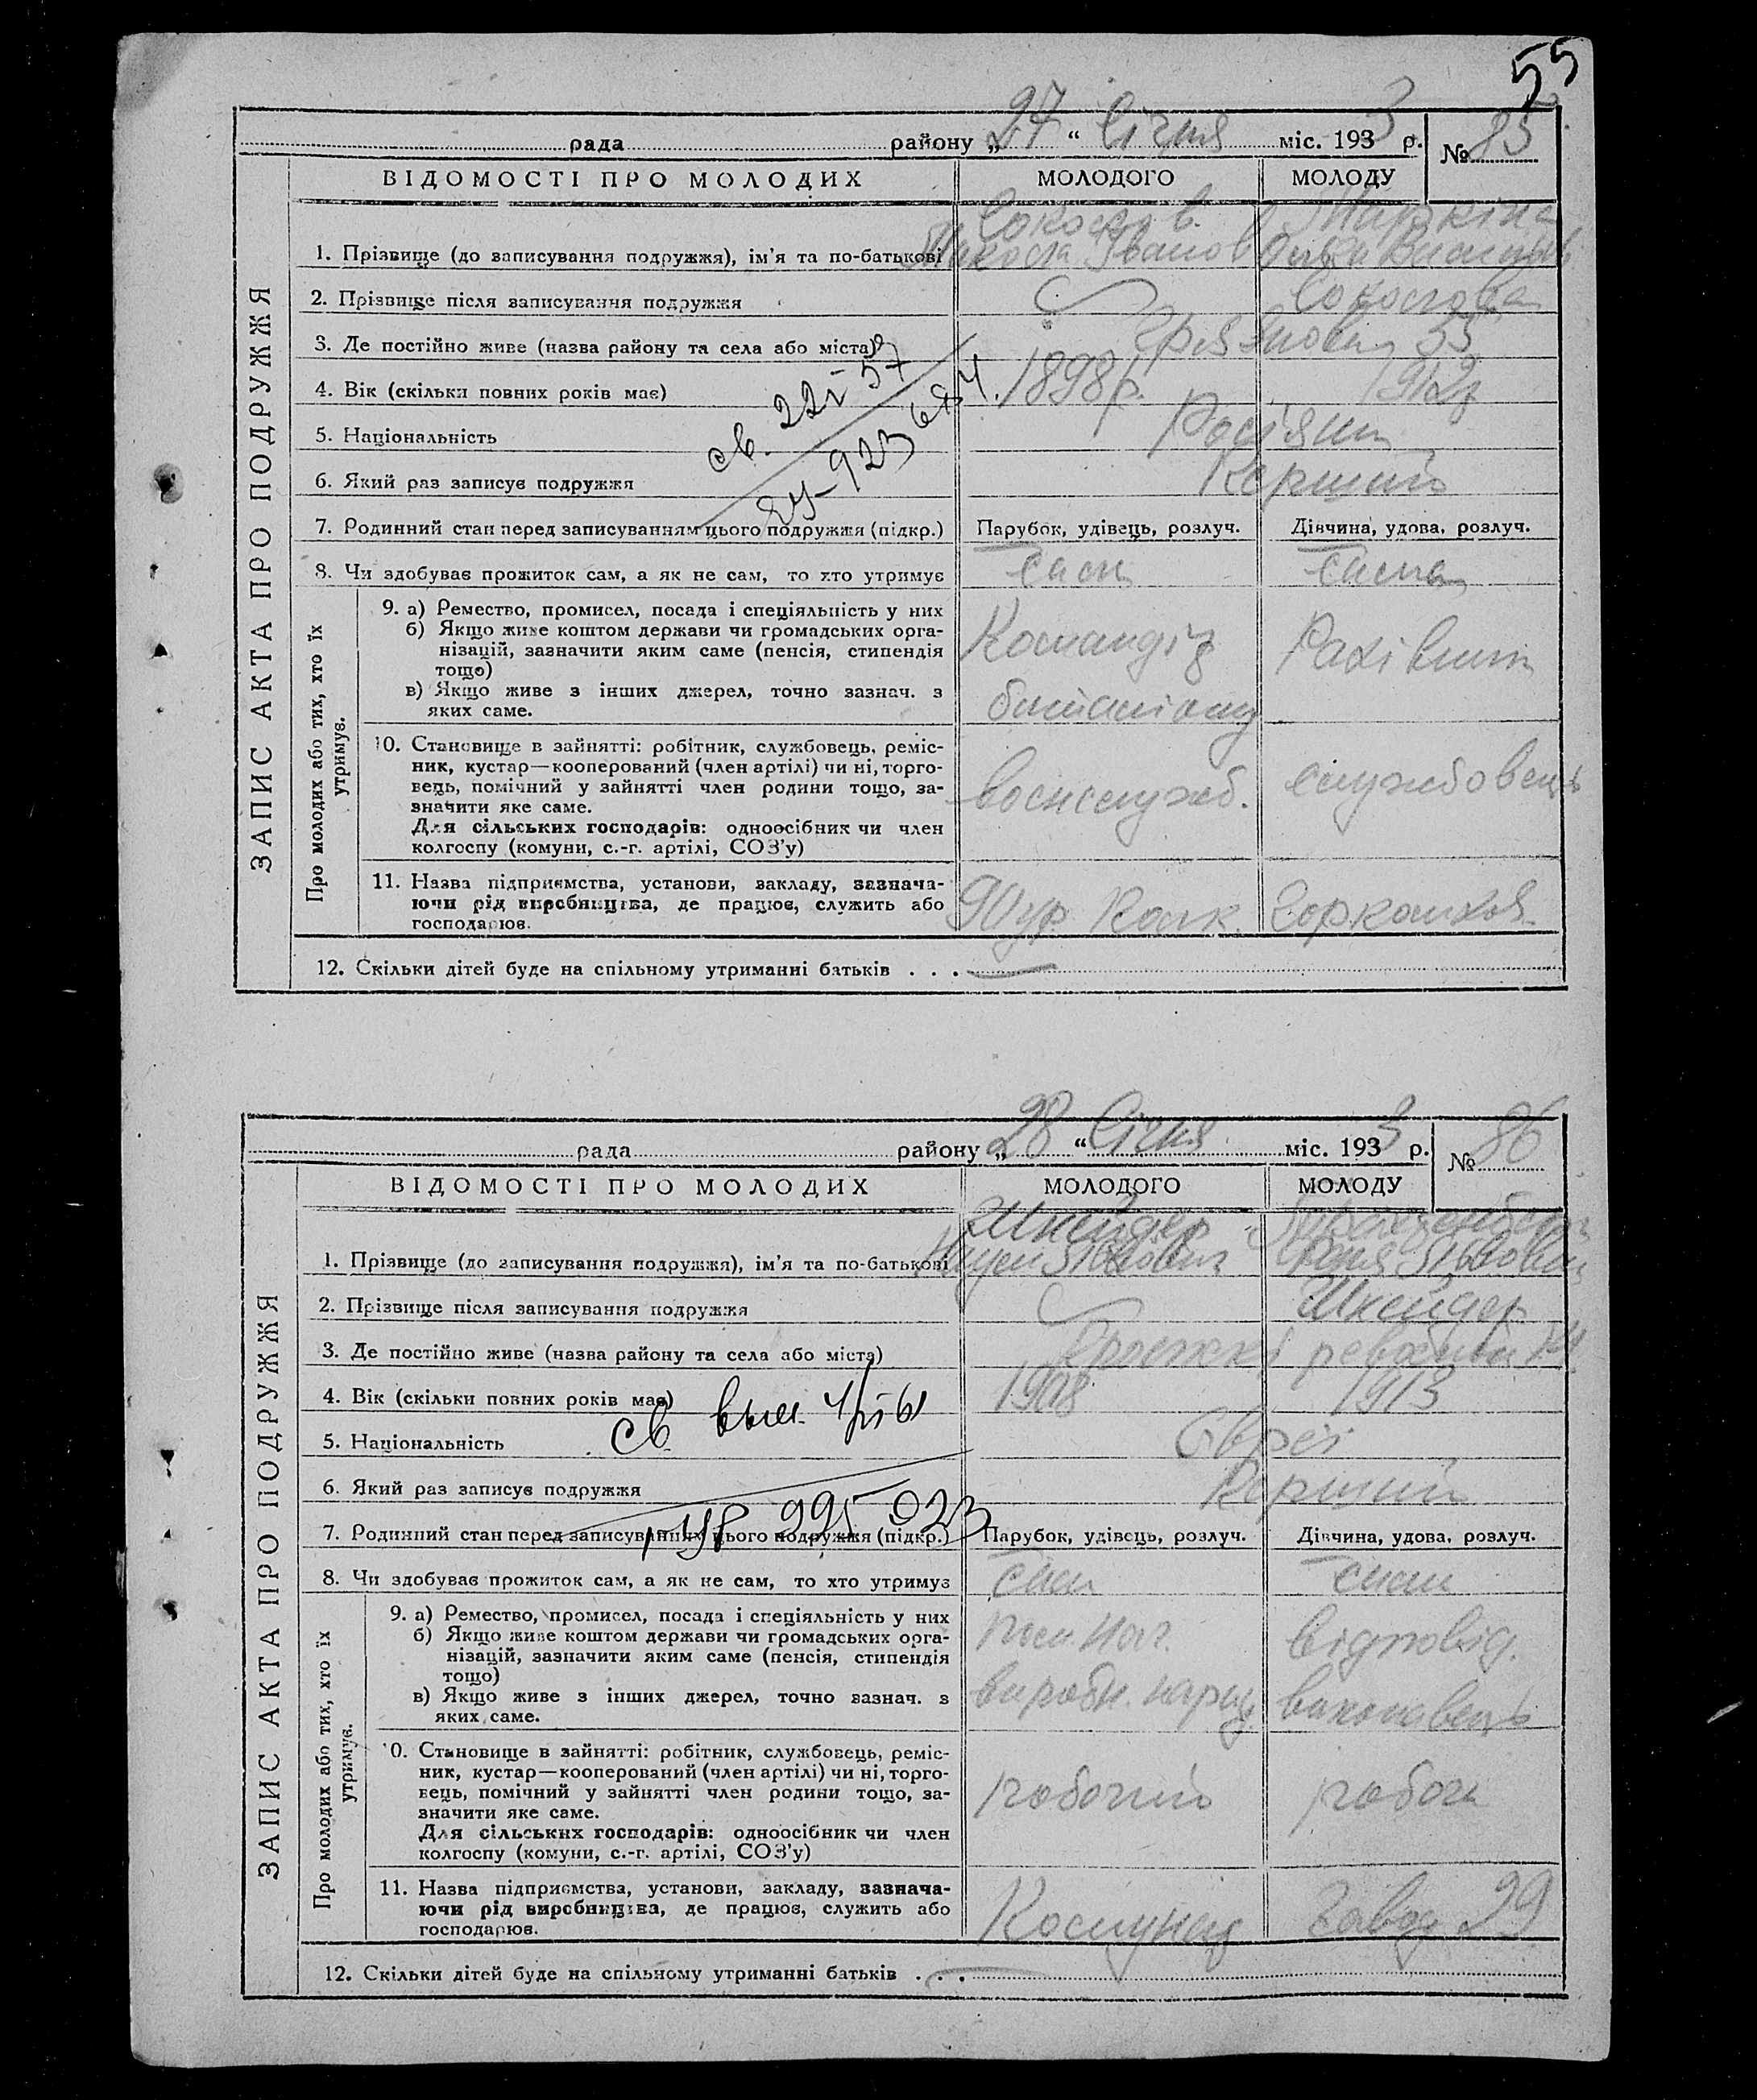 55
рада району „27“ Січня міс. 1933 р. № 85
ЗАПИС АКТА ПРО ПОДРУЖЖЯ
ВІДОМОСТІ ПРО МОЛОДИХ МОЛОДОГО МОЛОДУ
Соколов
1. Прізвище (до записування подружжя), ім'я та по-батькові Микола Іванов
2. Прізвище після записування подружжя Соколова
3. Де постійно живе (назва району та села або міста)
4. Вік (скільки повних років має) 1898 р. 1912 р
св. 22
5. Національність Росіяни
6. Який раз записує подружжя Перший
7. Родинний стан перед записуванням цього подружжя (підкр.) Парубок, удівець, розлуч. Дівчина, удова, розлуч.
8. Чи здобуває прожиток сам, а як не сам, то хто утримує сам сама
Про молодих або тих, хто їх утримує.
9. а) Ремество, промисел, посада і спеціяльність у них
б) Якщо живе коштом держави чи громадських орга-
нізацій, зазначити яким саме (пенсія, стипендія
тощо)
в) Якщо живе з інших джерел, точно зазнач. з
яких саме.
Командір Рахівник
баталіону
10. Становище в зайнятті: робітник, службовець, реміс-
ник, кустар—кооперований (член артілі) чи ні, торго-
вець, помічний у зайнятті член родини тощо, за-
значити яке саме.
Для сільських господарів: одноосібник чи член
колгоспу (комуни, с.-г. артілі, СОЗ'у)
воєнслужб. службовець
11. Назва підприємства, установи, закладу, зазнача-
ючи рід виробництва, де працює, служить або
господарює.
12. Скільки дітей буде на спільному утриманні батьків . . .
рада району „28“ Січня міс. 1933 р. № 86
ЗАПИС АКТА ПРО ПОДРУЖЖЯ
ВІДОМОСТІ ПРО МОЛОДИХ МОЛОДОГО МОЛОДУ
Шнейдер
1. Прізвище (до записування подружжя), ім'я та по-батькові
2. Прізвище після записування подружжя Шнейдер
3. Де постійно живе (назва району та села або міста)
4. Вік (скільки повних років має) 1908 1913
св
5. Національність Євреї
6. Який раз записує подружжя Перший
7. Родинний стан перед записуванням цього подружжя (підкр.) Парубок, удівець, розлуч. Дівчина, удова, розлуч.
8. Чи здобуває прожиток сам, а як не сам, то хто утримує сам сам
Про молодих або тих, хто їх утримує.
9. а) Ремество, промисел, посада і спеціяльність у них
б) Якщо живе коштом держави чи громадських орга-
нізацій, зазначити яким саме (пенсія, стипендія
тощо)
в) Якщо живе з інших джерел, точно зазнач. з
яких саме.
відповід.
виконавець
10. Становище в зайнятті: робітник, службовець, реміс-
ник, кустар—кооперований (член артілі) чи ні, торго-
вець, помічний у зайнятті член родини тощо, за-
значити яке саме.
Для сільських господарів: одноосібник чи член
колгоспу (комуни, с.-г. артілі, СОЗ'у)
робочий робоч
11. Назва підприємства, установи, закладу, зазнача-
ючи рід виробництва, де працює, служить або
господарює.
Завод 29
12. Скільки дітей буде на спільному утриманні батьків . . .